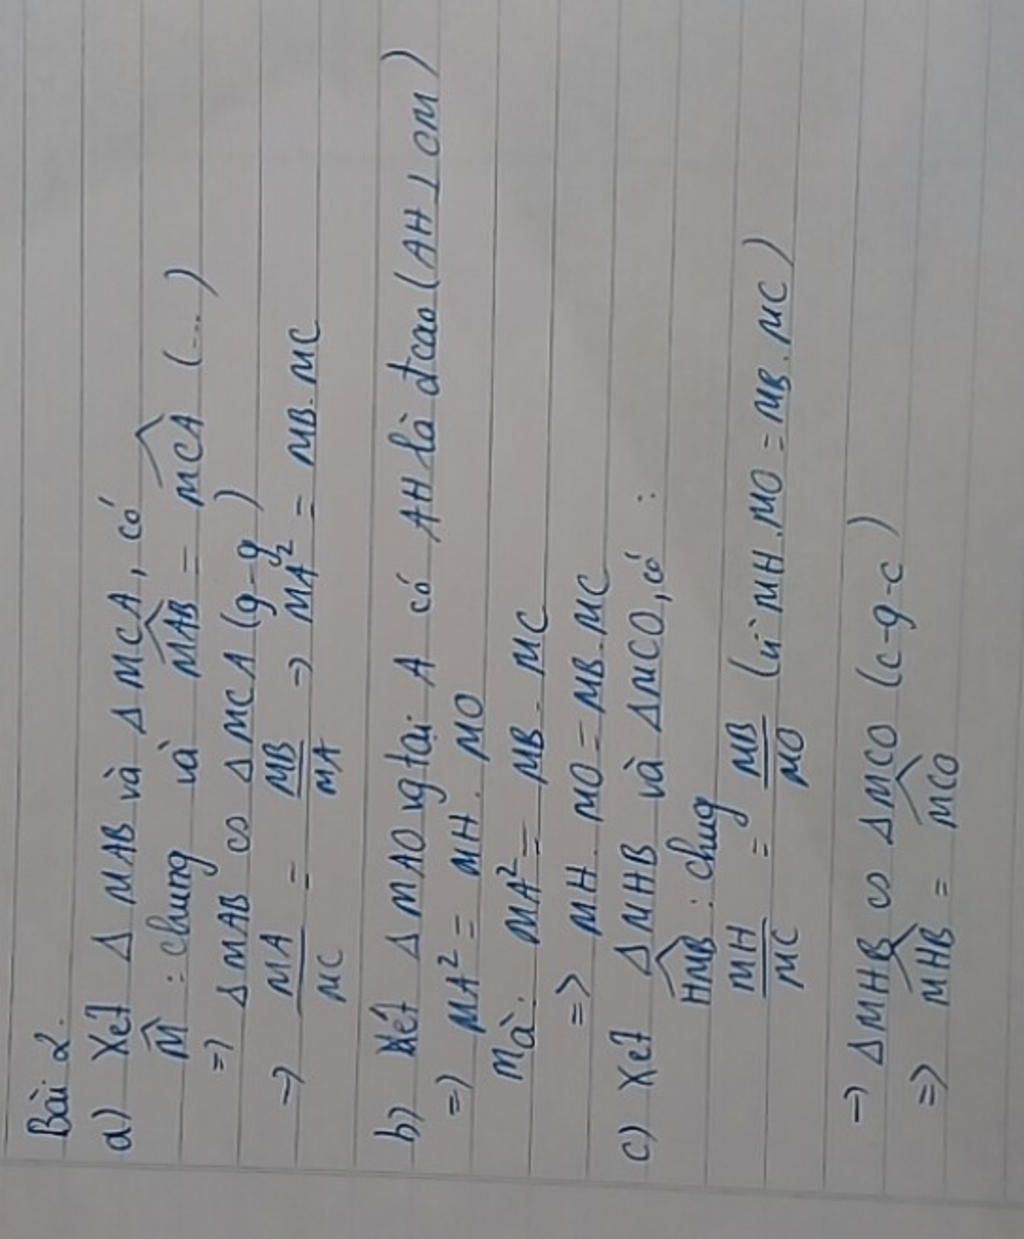 Bài 2.
a) Xét Δ MAB và Δ MCA, có
M̂ : chung và M̂AB = M̂CA (...)
=) Δ MAB ∽ Δ MCA (g-g)
-) MA/MC = MB/MA -) MA² = MB. MC
b) Xét Δ MAO vg tại A có AH là đcao (AH ⊥ OM)
=) MA² = MH. MO
Mà: MA² = MB. MC
=> MH. MO = MB. MC
c) Xét Δ MHB và Δ MCO, có :
ĤMB : chug
MH/MC = MB/MO (vì MH. MO = MB. MC)
-) Δ MHB ∽ Δ MCO (c-g-c)
=> M̂HB = M̂CO